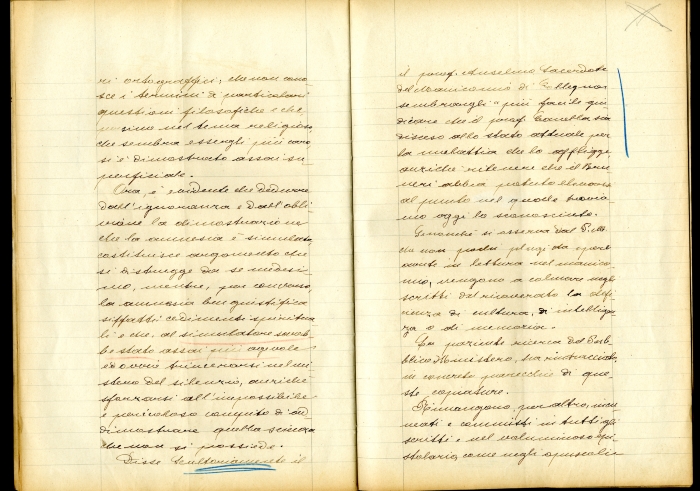 ri ortografici; che non cono-
sce i termini di particolari
questioni filosofiche e che
persino nel tema religioso
che sembra essergli più caro
si è dimostrato assai su-
perficiale.
Ora, è evidente che dedurre
dall'ignoranza e dall'obli-
vione la dimostrazione
che la amnesia è simulata,
costituisce argomento che
si distrugge da se medesi-
mo, mentre, per converso,
la amnesia ben giustifica
siffatti cedimenti spiritua-
li e che al simulatore sareb-
be stato assai più agevole
ed ovvio trincerarsi nel mi-
stero del silenzio, anziché
sforzarsi all'impossibile
e pericoloso compito di
dimostrare quella scienza
che non si possiede.
Disse testualmente il
il prof. Anselmo Sacerdote
del Manicomio di Collegno:
"sembrargli" più facile giu-
dicare che il prof. Canella sia
disceso allo stato attuale per
la malattia che lo affligge,
anziché ritenere che il Bru-
neri abbia potuto elevarsi
al punto nel quale trovia-
mo oggi lo sconosciuto.
Senonché si osserva dal P. M.
che non pochi plagi da opere
avute in lettura nel manico-
mio, vengono a colmare negli
scritti del ricoverato la defi-
cienza di cultura, di intelligen-
za o di memoria.
La paziente ricerca del Pub-
blico Ministero, ha rintracciato
in concreto parecchie di que-
ste copiature.
Rimangono, per altro,
e commisti in tutti gli
scritti e nel voluminoso epi-
stolario, come negli opuscoli